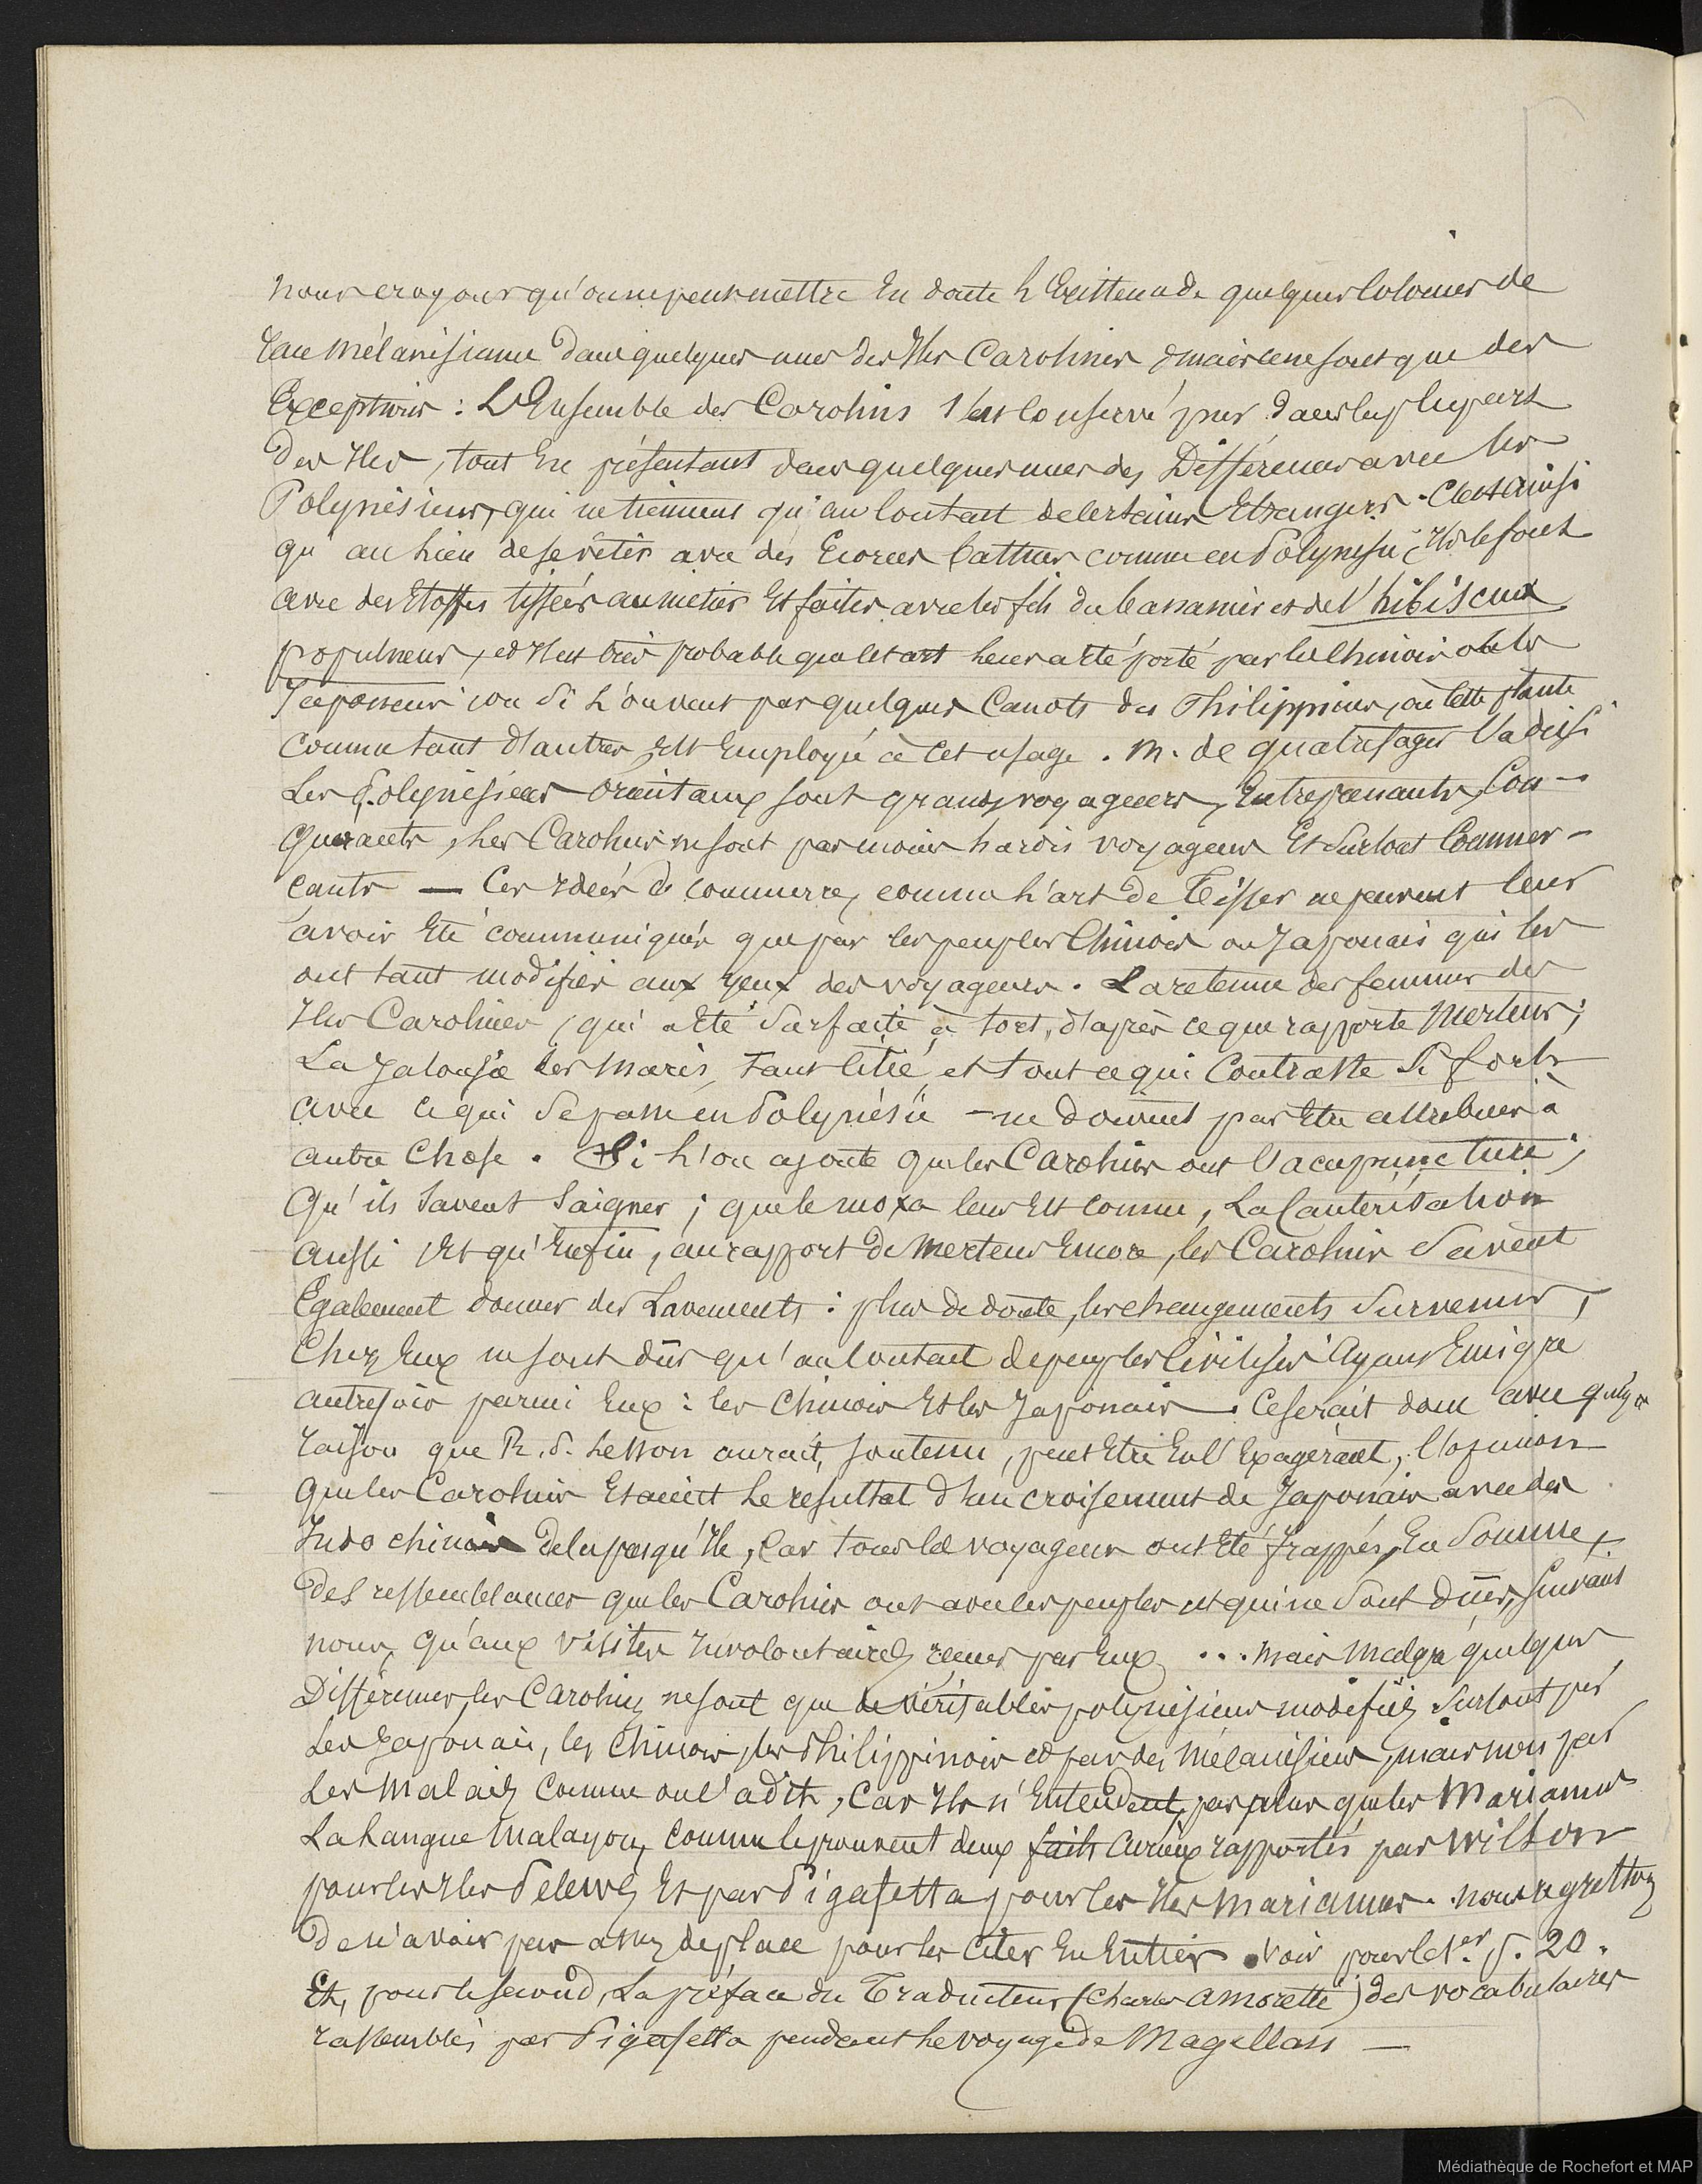 nous croyons qu'on ne peut mettre En doute l'Existence de quelques Colonies de
race mélanésienne dans quelques unes des Iles Carolines mais ce ne sont que des
Exceptions : L'Ensemble des Carolins s'est conservé pur dans la plupart
Des Iles, tout En présentant dans quelques unes des Différences avec les
Polynésiens, qui ne tiennent qu'au Contact de Certains Etrangers. C'est ainsi
qu'au lieu de se vêtir avec des Ecorces battues comme en Polynésie, Ils le font
avec des Etoffes tissées au métier Et faites avec les fils du bananier et de l'hibiscus
populneus, et Il est bien probable que cet art leur a Eté porté par les Chinois ou les
Japonais, ou si l'on veut par quelques Canots des Philippines, où cette plante
comme tant d'autres, Est Employée à Cet usage. M. de quatrefages l'a dit si
Les Polynésiens Orientaux sont grands voyageurs, Entreprenants, Con-
quérants, les Carolins ne sont pas moins hardis voyageurs Et surtout Commer-
çants — Ces Idées de commerce, comme l'art de Tisser ne peuvent leur
avoir Eté communiqués que par les peuples Chinois ou Japonais qui les
ont tant modifiés aux yeux des voyageurs. La retenue des femmes des
Iles Carolines, qui a Eté surfaite à tort, d'après ce que rapporte Mertens ;
La Jalousie des Maris, tant citée, et tout ce qui Contraste si fort
avec ce qui se passe en Polynésie - ne doivent pas Etre attribués à
autre Chose. Si l'on ajoute que les Carolins ont l'acupuncture ;
Qu'ils savent saigner ; que le moxa leur Est connu, La Cautérisation
aussi Et qu'Enfin, au rapport de Mertens Encore, les Carolins savent
Egalement donner des Lavements : plus de doute, les changements survenus,
Chez Eux ne sont dûs qu'au Contact de peuples Civilisés Ayant Emigré
autrefois parmi Eux : les Chinois Et les Japonais. Ce serait donc avec quelque
raison que R. P. Lesson aurait, soutenu, peut Etre En l'Exagérant, l'opinion
que les Carolins Etaient le résultat d'un croisement de Japonais avec des
Indo chinois de la presqu'Ile, Car tous les voyageurs ont Eté frappés, En somme,
Des ressemblances que les Carolins ont avec les peuples et qui ne sont dûes, suivant
nous, qu'aux visites Involontaires reçues par Eux ... Mais Malgré quelques
Différences, les Carolins ne sont que de véritables polynésiens modifiés surtout par
Les Japonais, les Chinois, les Philippinois et par des Mélanésiens, mais non par
Les Malais comme on l'a dit, Car Ils n'Entendent pas plus que les Mariannais
La Langue Malayou, comme le prouvent deux faits Curieux rapportés par Wilson
pour les Iles Pelew, Et par Pigafetta pour les Iles Mariannes. nous regrettons
De n'avoir pas assez de place pour les citer En Entier. Voir pour le 1er p. 20.
Et, pour le second, La préface du Traducteur (Charles Amoretti) des vocabulaires
rassemblés par Pigafetta pendant le voyage de Magellan —
Médiathèque de Rochefort et MAP